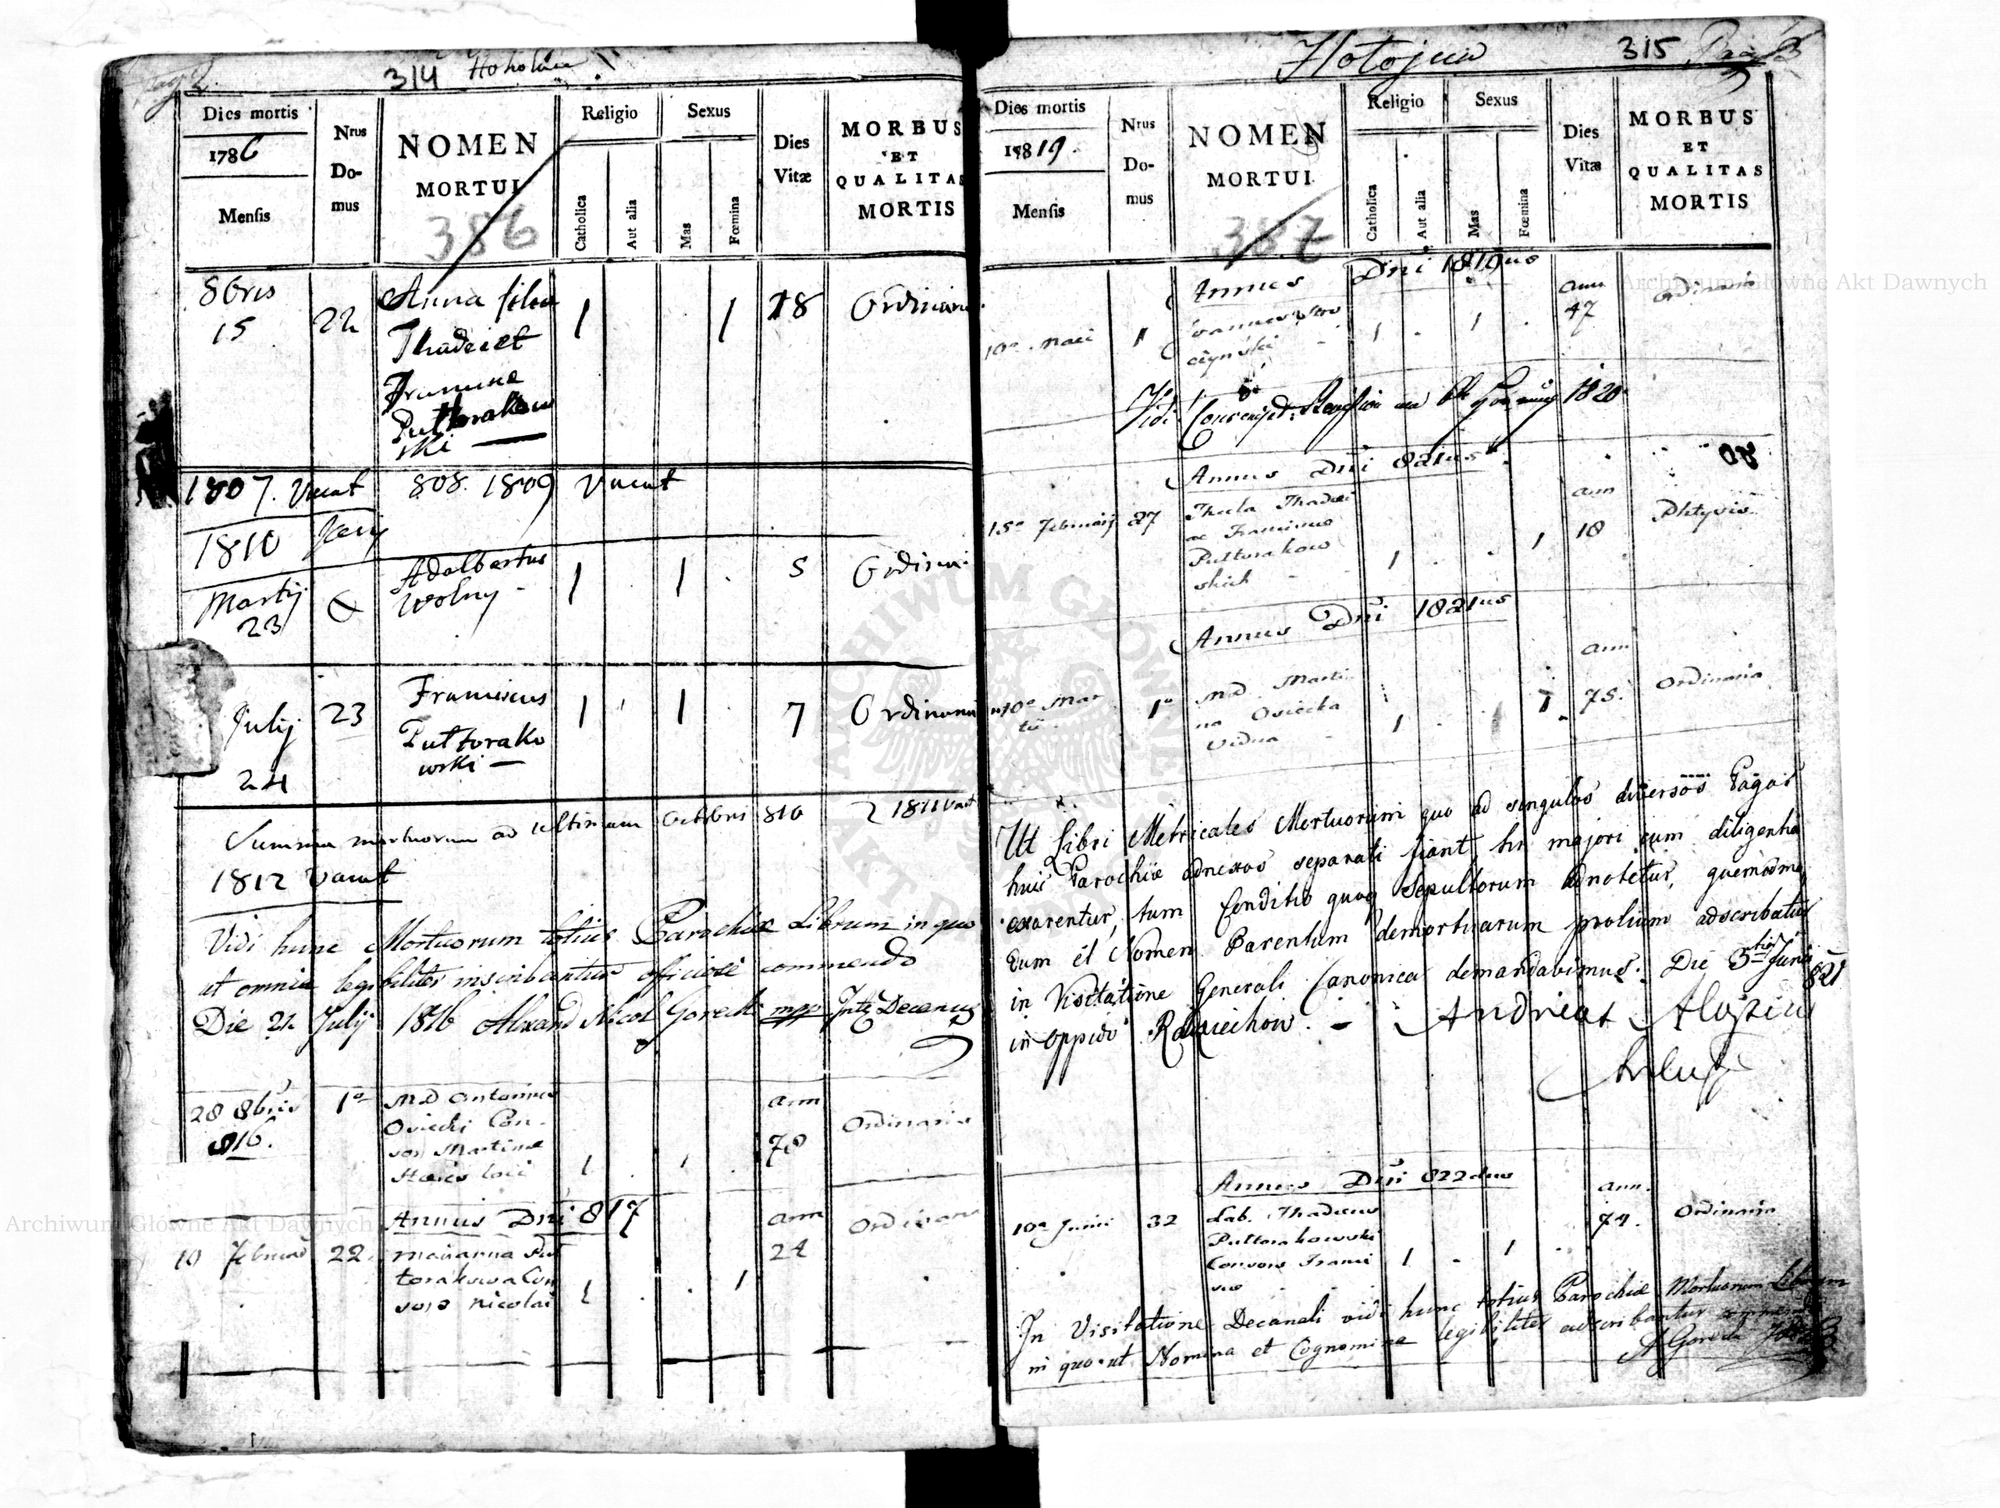 pag 2.
314
Dies mortis
1786
Mensis
Nrus
Do-
mus
NOMEN
MORTUI
386
Religio
Catholica
Aut alia
Sexus
Mas
Fœmina
Dies
Vitæ
MORBUS
ET
QUALITAS
MORTIS
8bris
15
22
Anna filia
Thadei et
Puttorakow
ski
1
1
18
Ordinaria
1807. Vacat 808. 1809 Vacat
1810
Martij
23
Adalbertus
Wolny
1
1
5
Ordinari
July
24
23
Franciscus
Puttorako
wski
1
1
7
Ordinaria
Summa mortuorum ad ultimam Octobris 810
1811 Vacat
1812 Vacat
Vidi hunc Mortuorum totius Parochiæ Librum in quo
ut omnia legibiliter inscribantur officiose commendo
Die 21 July 1816 Alexand Nicol Gorecki mpp Decanus
28 8bris
816.
1º
MD Antonius
Osiecki Con-
sors Martinæ
Hæres loci
1
1
ann
78
Ordinaria
Annus Dni 817
10 Februar
22.
Marianna Put
torakowa Con
sors Nicolai
1
1
ann
24
Ordinaria
315
Dies mortis
17819.
Mensis
Nrus
Do-
mus
NOMEN
MORTUI
387
Religio
Catholica
Aut alia
Sexus
Mas
Fœmina
Dies
Vitæ
MORBUS
ET
QUALITAS
MORTIS
Annus Dni 1819us
10ª Maii
1
czyński
1
1
ann
47
Ordinaria
Vidi
1820
Annus Dni 821us
15ª Februarij
27
Thecla Thadei
ac Franciscæ
Puttorakow
skich
1
1
ann
18
Phtysis
Annus Dni 1821us
10ª Mar
tii
1º
MD Marti
na Osiecka
Vidua
1
1
ann
75.
Ordinaria
Ut Libri Metricales Mortuorum quo ad singulos diversos Pagos
huic Parochiæ adnexos separati fiant hic majori cum diligentia
exarentur, tum Conditio quoq sepultorum adnotetur, quemadmo
dum et Nomen Parentum demortuarum prolium adscribatur
in Visitatione Generali Canonica demandavimus. Die 5tia Junii 821
in oppido Radziechow. Andreas Aloysius
Annus Dni 822dus
10ª Junii
32
Lab. Thadeus
Puttorakowski
Consors Franci
scæ
1
1
ann.
74.
Ordinaria
In Visitatione Decanali vidi hunc totius Parochiæ Mortuorum Librum
in quo ut Nomina et Cognomina legibiliter adscribantur commendo
A Gorecki
Archiwum Główne Akt Dawnych
Archiwum Główne Akt Dawnych
ARCHIWUM GŁÓWNE AKT DAWNYCH